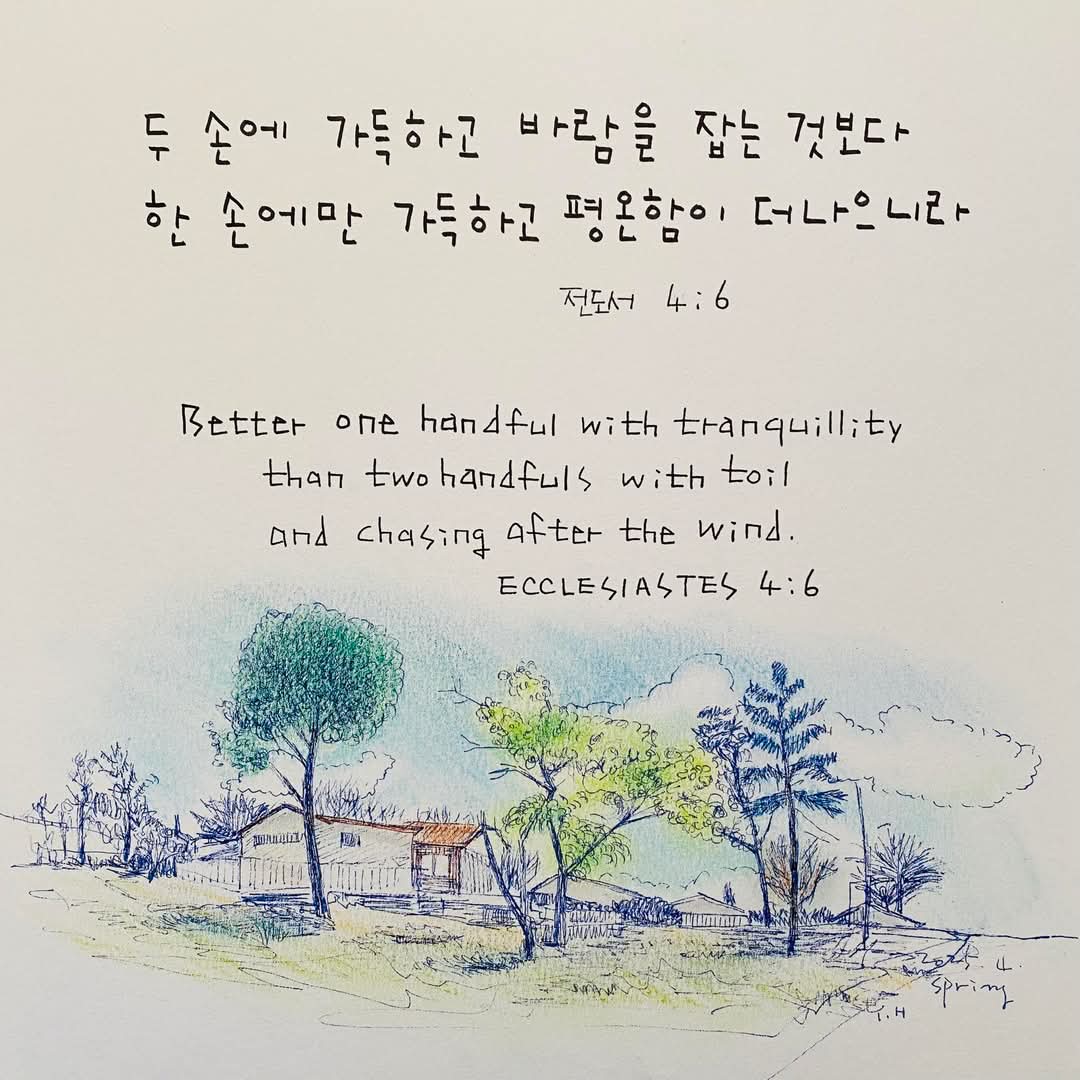 두 손에 가득하고 바람을 잡는 것보다
한 손에만 가득하고 평온함이 더 나으니라
전도서 4:6
Better one handful with tranquillity
than two handfuls with toil
and chasing after the wind.
ECCLESIASTES 4:6
2025. 4.
Spring
Y.H